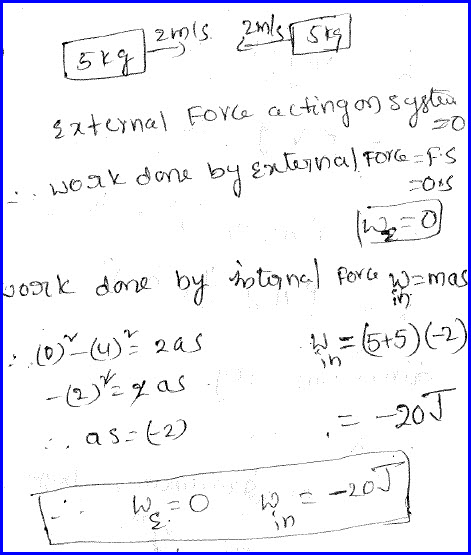 2m/s 2m/s
5kg 5kg
External Force acting on system
=0
∴ work done by External Force = F.S
=0×S
W_E=0
work done by internal Force W_in=mas
∴ (0)²-(4)² = 2as W_in = (5+5)(-2)
-(2)²= 2as
= -20J
∴ as=(-2)
∴ W_E = 0 W_in = -20J